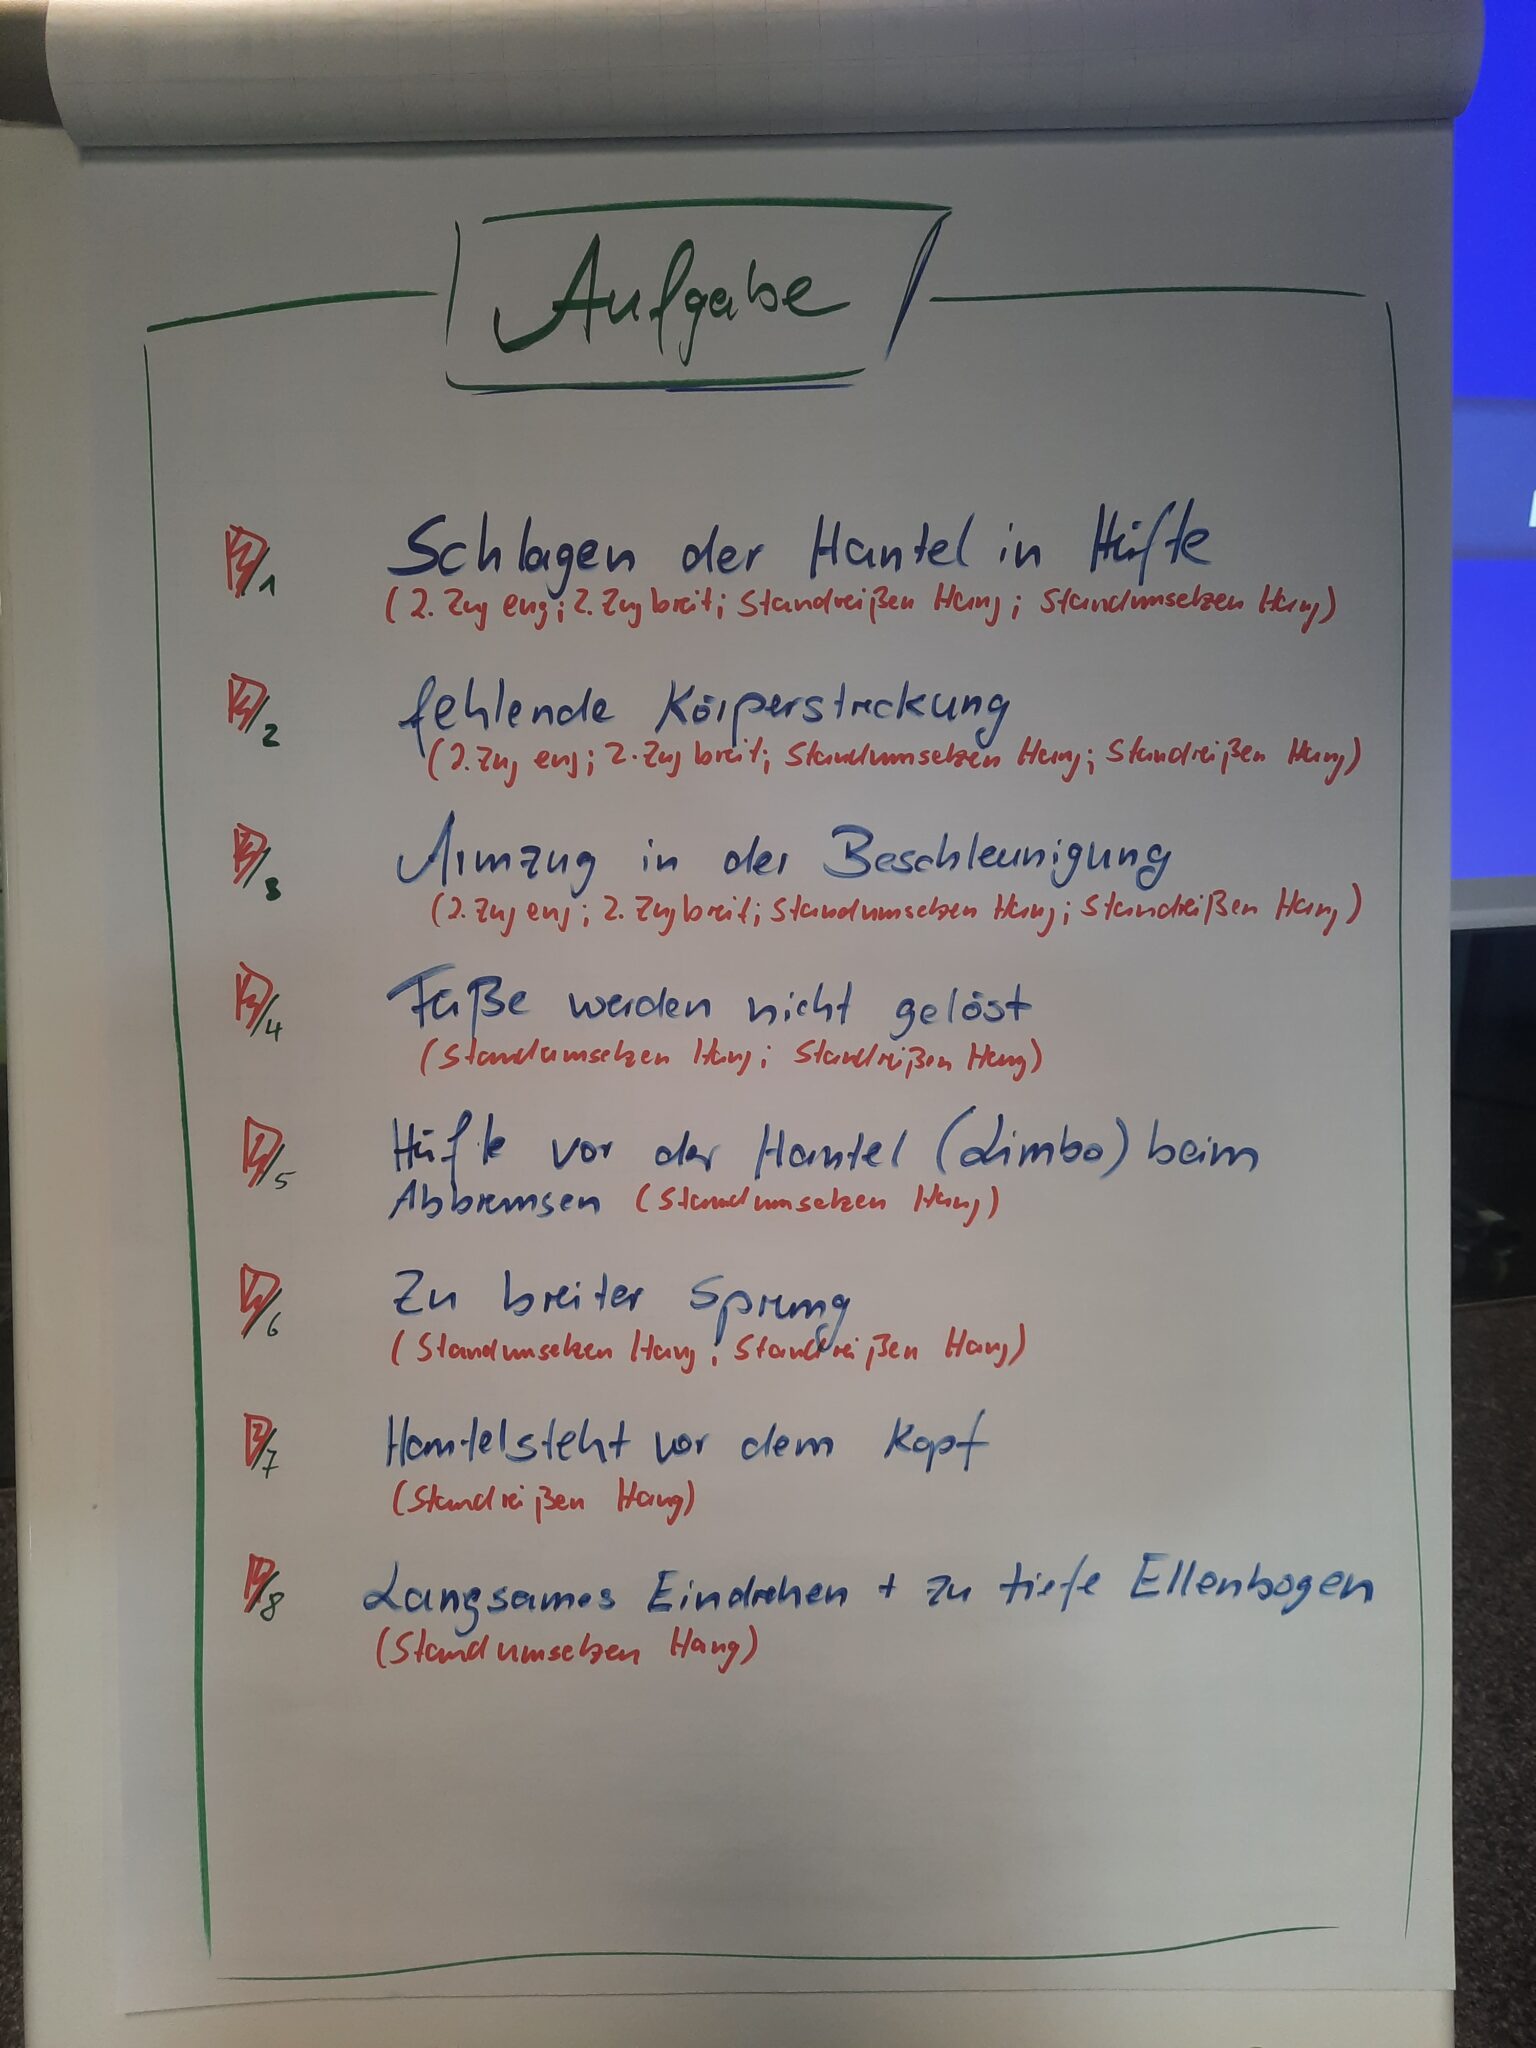 Aufgabe
1 Schlagen der Hantel in Hüfte
(2. Zug eng; 2. Zug breit; Standreißen Hang; Standumsetzen Hang)
2 fehlende Körperstreckung
(2. Zug eng; 2. Zug breit; Standumsetzen Hang; Standreißen Hang)
3 Armzug in der Beschleunigung
(2. Zug eng; 2. Zug breit; Standumsetzen Hang; Standreißen Hang)
4 Füße werden nicht gelöst
(Standumsetzen Hang; Standreißen Hang)
5 Hüfte vor der Hantel (Limbo) beim
Abbremsen (Standumsetzen Hang)
6 Zu breiter Sprung
(Standumsetzen Hang; Standreißen Hang)
7 Hantel steht vor dem Kopf
(Standreißen Hang)
8 Langsames Eindrehen + zu tiefe Ellenbogen
(Standumsetzen Hang)